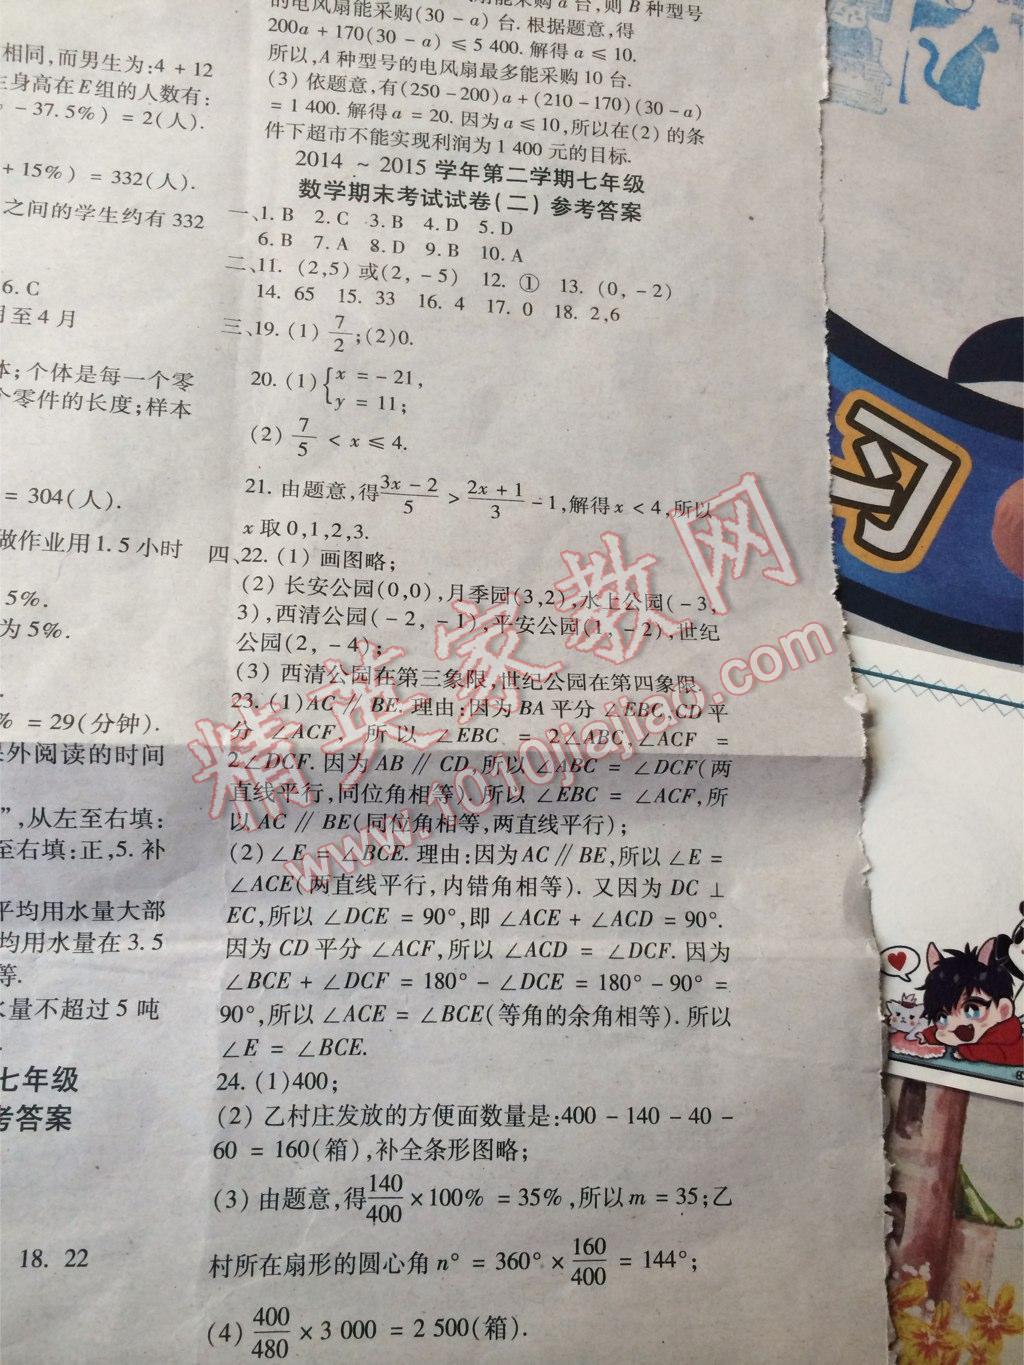 相同,而男生为:4 + 12
身高在E组的人数有:
- 37.5%) = 2(人).
+ 15%) = 332(人).
之间的学生约有 332
6. C
至 4 月
本;个体是每一个零
零件的长度;样本
= 304(人).
做作业用 1. 5 小时
5%.
为 5%.
% = 29(分钟).
外阅读的时间
”,从左至右填:
至右填:正,5. 补
平均用水量大部
均用水量在 3. 5
等.
水量不超过 5 吨
七年级
考答案
18. 22
的电风扇能采购(30 - a) 台. 根据题意,得
200a + 170(30 - a) ≤ 5 400. 解得 a ≤ 10.
所以,A 种型号的电风扇最多能采购 10 台.
(3) 依题意,有(250 - 200)a + (210 - 170)(30 - a)
= 1 400. 解得 a = 20. 因为 a ≤ 10,所以在(2) 的条
件下超市不能实现利润为 1 400 元的目标.
2014 ~ 2015 学年第二学期七年级
数学期末考试试卷(二) 参考答案
一、1. B 2. C 3. B 4. D 5. D
6. B 7. A 8. D 9. B 10. A
二、11. (2,5) 或(2, - 5) 12. ① 13. (0, - 2)
14. 65 15. 33 16. 4 17. 0 18. 2,6
三、19. (1) 7/2;(2)0.
20. (1) { x = - 21,
y = 11;
(2) 7/5 < x ≤ 4.
21. 由题意,得 (3x - 2)/5 > (2x + 1)/3 - 1,解得 x < 4,所以
x 取 0,1,2,3.
四、22. (1) 画图略;
(2) 长安公园(0,0),月季园(3,2),水上公园( - 3,
3),西清公园( - 2, - 1),平安公园(1, - 2),世纪
公园(2, - 4);
(3) 西清公园在第三象限,世纪公园在第四象限.
23. (1)AC ∥ BE. 理由:因为 BA 平分 ∠EBC,CD 平
分 ∠ACF, 所以 ∠EBC = 2∠ABC,∠ACF =
2∠DCF. 因为 AB ∥ CD,所以 ∠ABC = ∠DCF(两
直线平行,同位角相等). 所以 ∠EBC = ∠ACF,所
以 AC ∥ BE(同位角相等,两直线平行);
(2) ∠E = ∠BCE. 理由:因为 AC ∥ BE,所以 ∠E =
∠ACE(两直线平行, 内错角相等). 又因为 DC ⊥
EC,所以 ∠DCE = 90°,即 ∠ACE + ∠ACD = 90°.
因为 CD 平分 ∠ACF,所以 ∠ACD = ∠DCF. 因为
∠BCE + ∠DCF = 180° - ∠DCE = 180° - 90° =
90°,所以 ∠ACE = ∠BCE(等角的余角相等). 所以
∠E = ∠BCE.
24. (1)400;
(2) 乙村庄发放的方便面数量是:400 - 140 - 40 -
60 = 160(箱),补全条形图略;
(3) 由题意,得 140/400 × 100% = 35%,所以 m = 35;乙
村所在扇形的圆心角 n° = 360° × 160/400 = 144°;
(4) 400/480 × 3 000 = 2 500(箱).
精英家教网
www.1010jiajiao.com